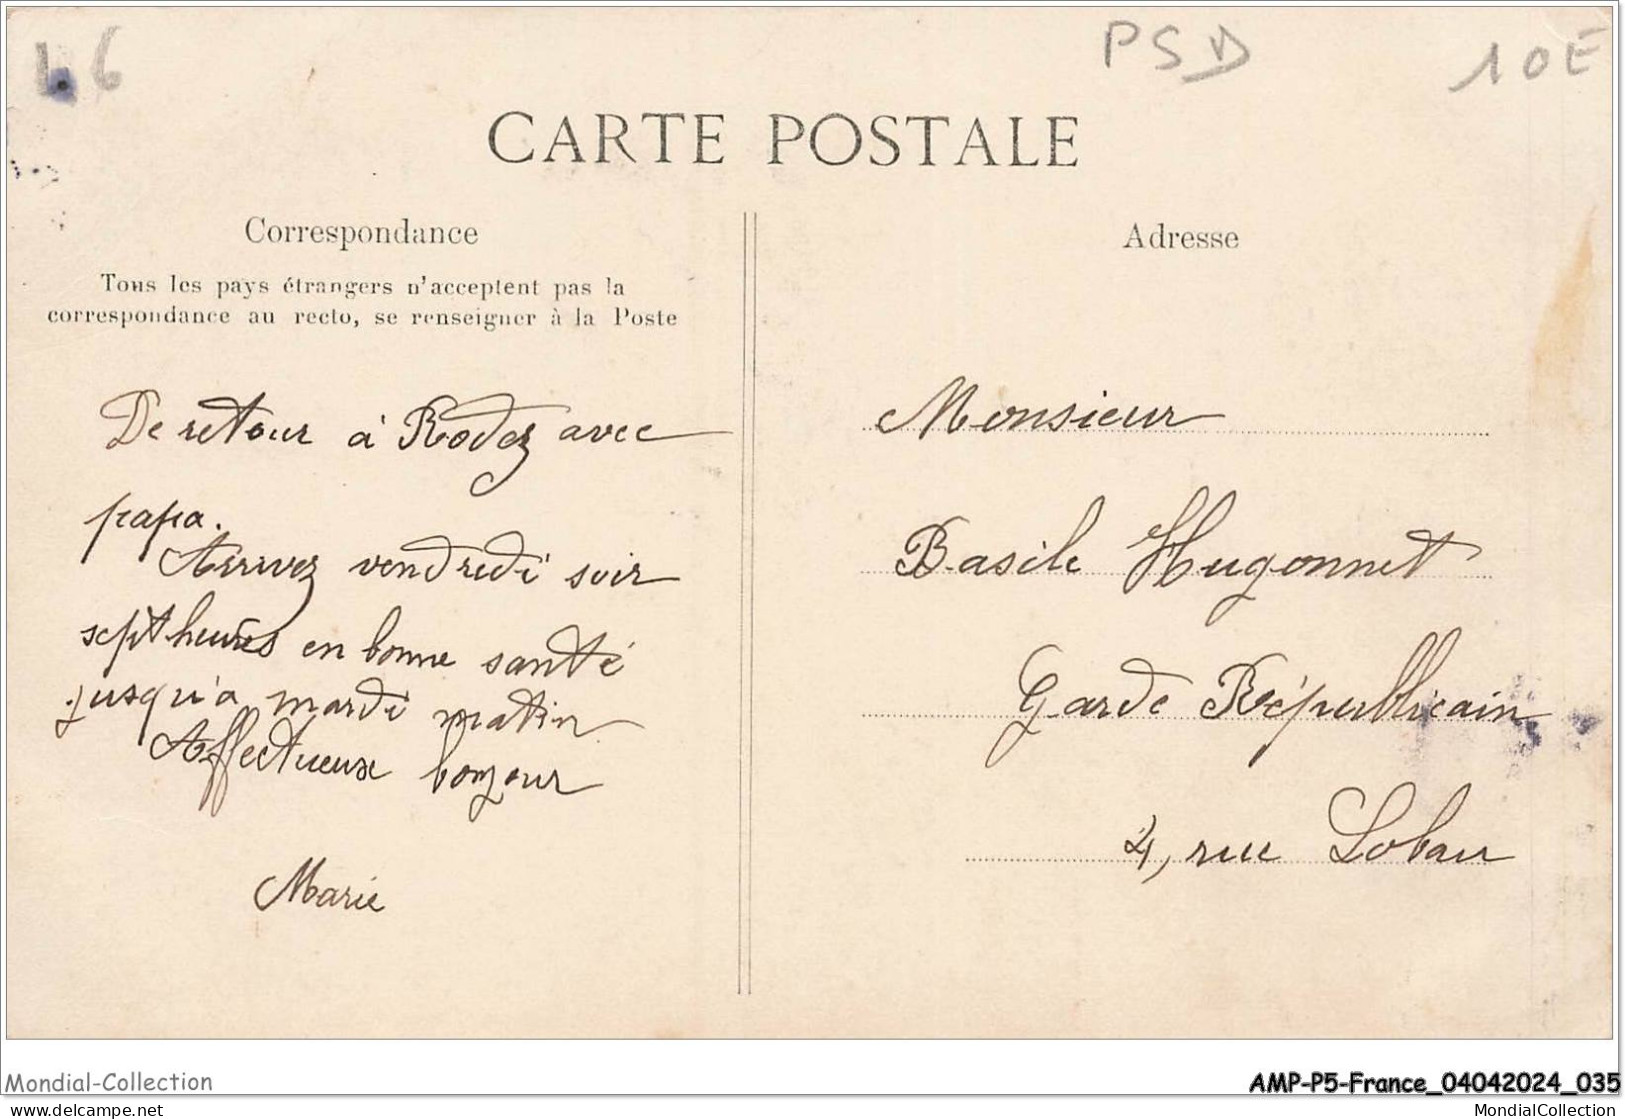 46
PSD
10E
CARTE POSTALE
Correspondance
Tous les pays étrangers n'acceptent pas la
correspondance au recto, se renseigner à la Poste
De retour à Rodez avec
papa.
Arrivez vendredi soir
sept heures en bonne santé
jusqu'à mardi matin
Affectueux bonjour
Marie
Adresse
Monsieur
Basile Hugonnet
Garde Républicain
4, rue Lobau
Mondial-Collection
AMP-P5-France_04042024_035
www.delcampe.net
MondialCollection